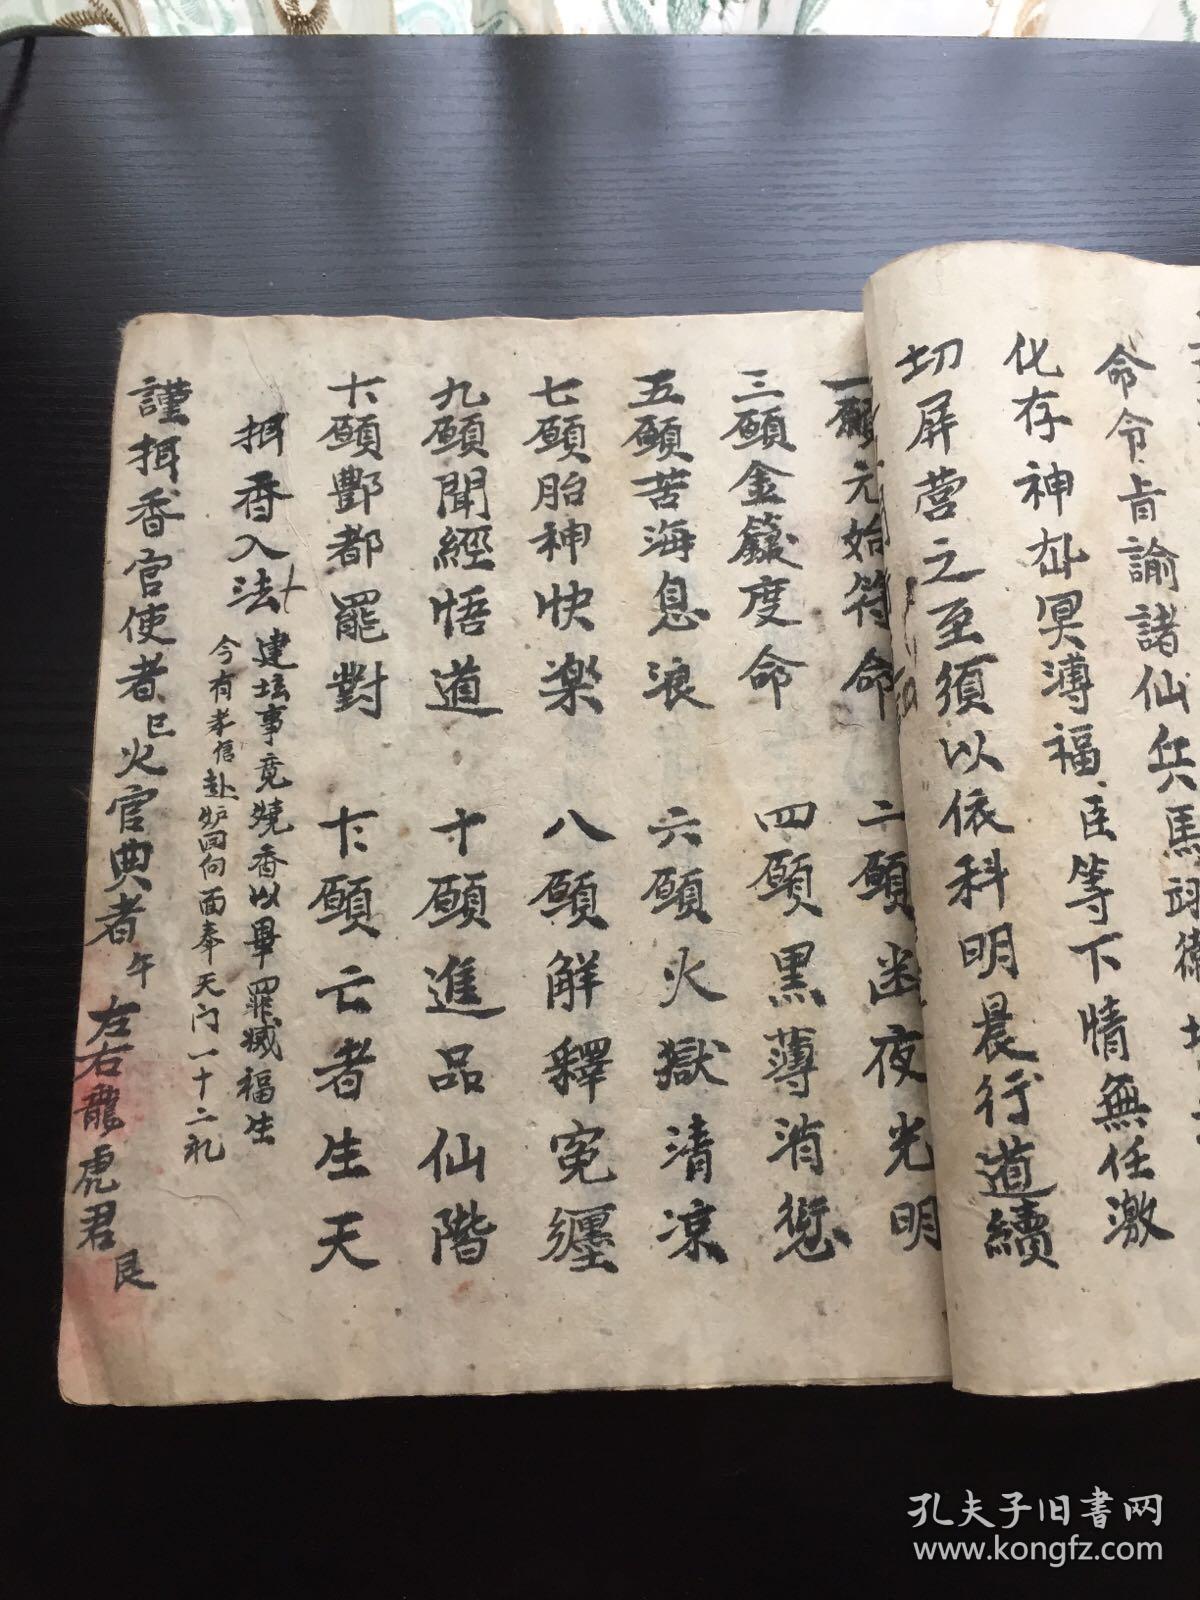 命令肯諭諸仙兵馬翊衛
化存神 冥溥福臣等下情無任激
切屏营之至須以依科明晨行道續
一願元始符命 二願幽夜光明
三願金籙度命 四願黑薄消愆
五願苦海息浪 六願火獄清凉
七願胎神快楽 八願解釋寃纏
九願聞經悟道 十願進品仙階
十願酆都罷對 十願亡者生天
揖香入法
建坛事竟燒香以畢罪滅福生
今有孝信赴炉回向面奉天门一十二礼
謹揖香官使者巳火官典者午左右龍虎君艮
孔夫子旧书网
www.kongfz.com